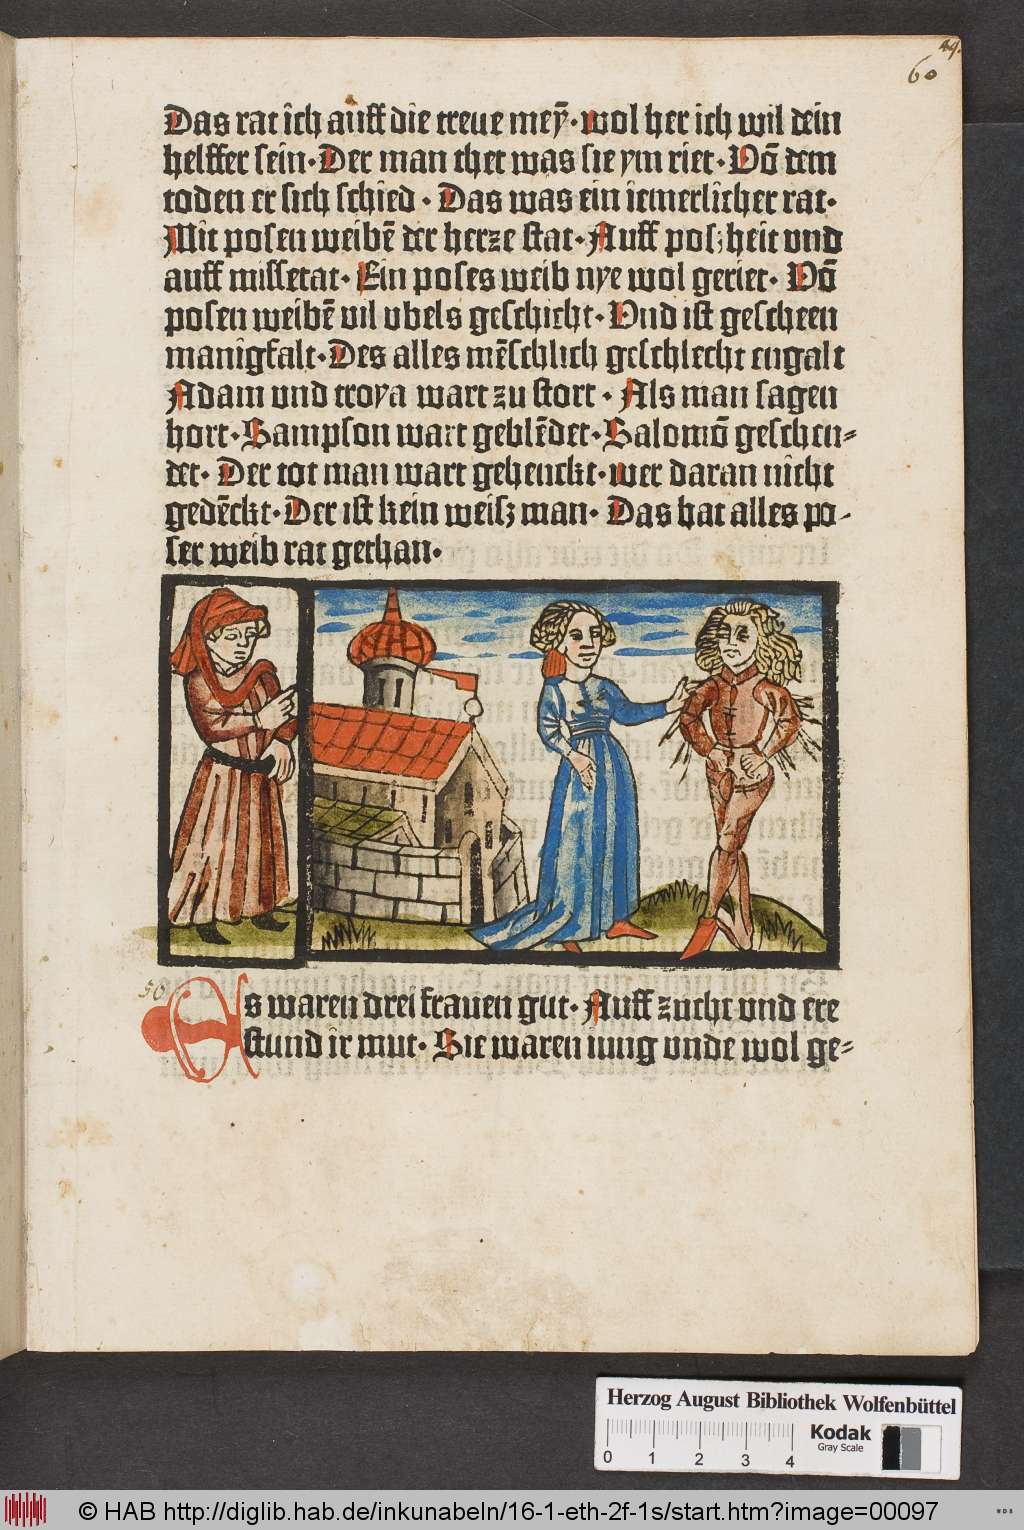 49.
60
Das rat ich auff die treue meȳ· wol her ich wil dein
helffer sein· Der man thet was sie ym riet· Võ dem
toden er sich schied· Das was ein iemerlicher rat·
Mit posen weibē der herze stat· Auff poszheit vnd
auff missetat· Ein poses weib nye wol geriet· Võ
posen weibē vil vbels geschicht· Vnd ist gescheen
manigfalt· Des alles mēschlich geschlecht engalt
Adam vnd troya wart zu stort· Als man sagen
hort· Sampson wart geblēdet· Salomō geschen⸗
det· Der tot man wart gehenckt· wer daran nicht
gedēckt· Der ist kein weisz man· Das hat alles po⸗
ser weib rat gethan·
50
Es waren drei frauen gut· Auff zucht vnd ere
stund ir mut· Sie waren iung vnde wol ge⸗
Herzog August Bibliothek Wolfenbüttel
Kodak
Gray Scale
0 1 2 3 4
© HAB http://diglib.hab.de/inkunabeln/16-1-eth-2f-1s/start.htm?image=00097